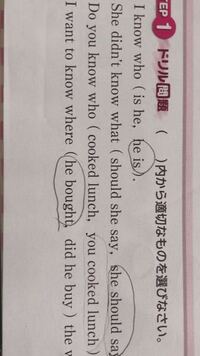 STEP 1 ドリル問題 ( )内から適切なものを選びなさい。
I know who ( is he, he is ).
She didn't know what ( should she say, she should say
Do you know who ( cooked lunch, you cooked lunch )
I want to know where ( he bought, did he buy ) the